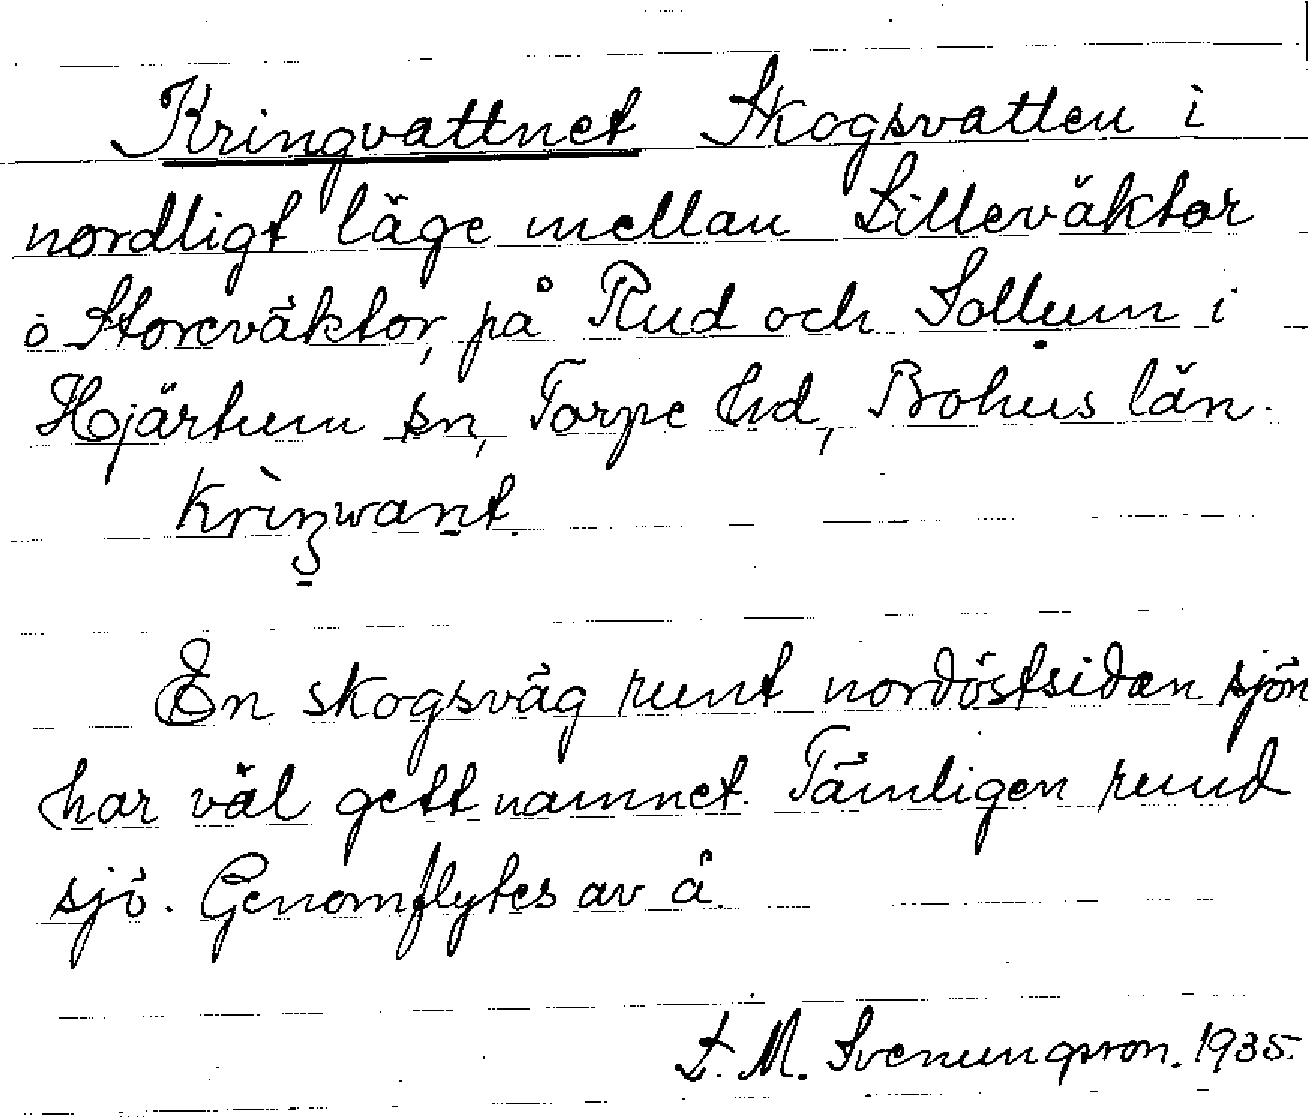 Kringvattnet Skogsvatten i
nordligt läge mellan Lilleväktor
o Storeväktor, på Rud och Sollum i
Hjärtum sn, Torpe hd, Bohus län.
En skogsväg runt nordöstsidan sjön
har väl gett namnet. Tämligen rund
sjö. Genomflytes av å.
L. M. Svenungsson. 1935.